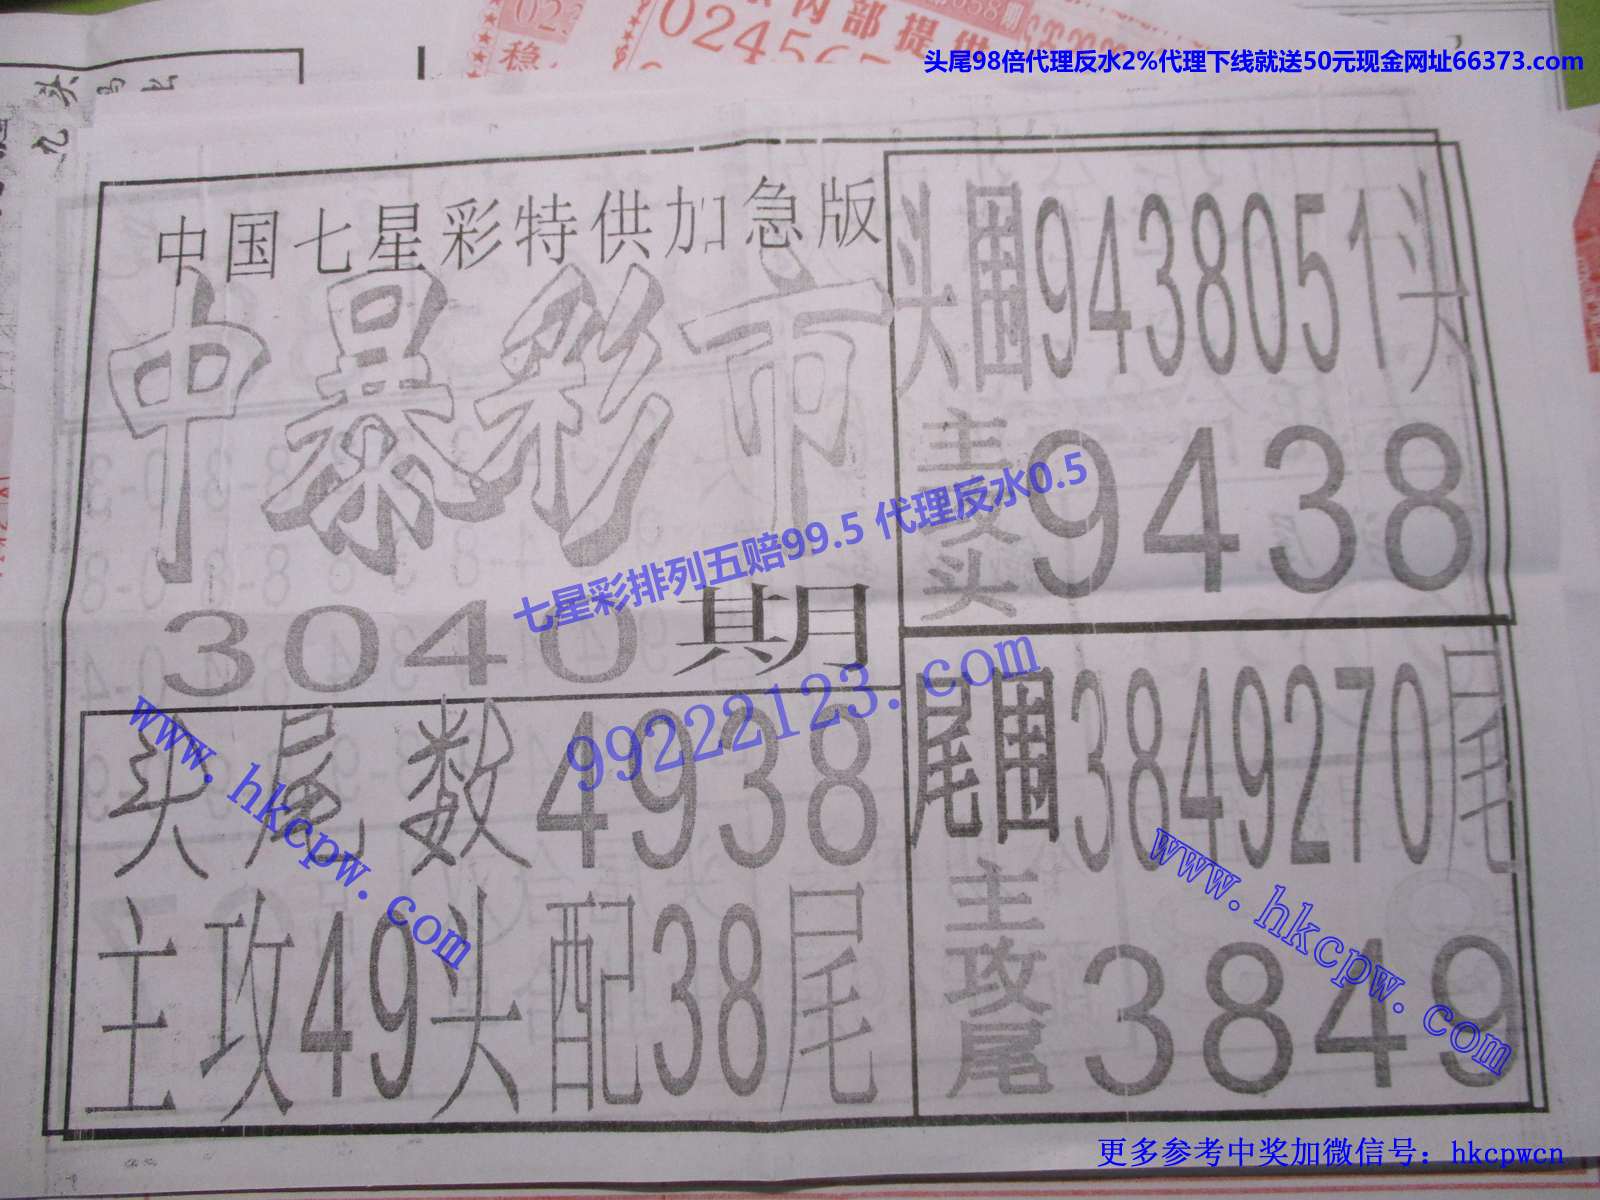 稳
024567
内部提供
头尾98倍代理反水2%代理下线就送50元现金网址66373.com
九头
中国七星彩特供加急版
中暴彩市
3040期
头围9438051头
主攻头
9438
七星彩排列五赔99.5 代理反水0.5
99222123.com
www.hkcpw.com
头尾数4938
主攻49头配38尾
尾围3849270尾
主攻尾
3849
www.hkcpw.com
更多参考中奖加微信号：hkcpwcn